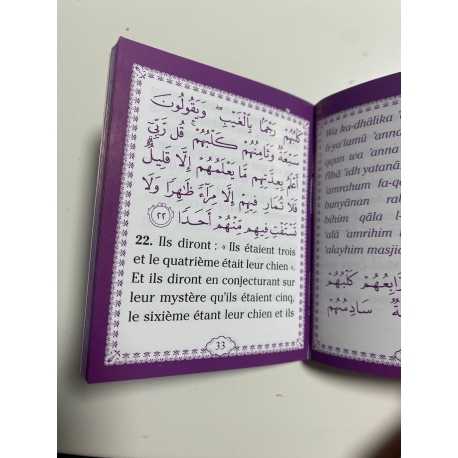 كَلْبُهُمْ رَجْمًا بِالْغَيْبِ ۖ وَيَقُولُونَ
سَبْعَةٌ وَثَامِنُهُمْ كَلْبُهُمْ ۚ قُل رَّبِّي
أَعْلَمُ بِعِدَّتِهِم مَّا يَعْلَمُهُمْ إِلَّا قَلِيلٌ ۗ
فَلَا تُمَارِ فِيهِمْ إِلَّا مِرَآءً ظَٰهِرًا وَلَا
تَسْتَفْتِ فِيهِم مِّنْهُمْ أَحَدًا ﴿٢٢﴾
22. Ils diront : « Ils étaient trois
et le quatrième était leur chien ».
Et ils diront en conjecturant sur
leur mystère qu'ils étaient cinq,
le sixième étant leur chien et ils
33
Wa ka-dhâlika
li-ya'lamû 'anna
qqan wa 'anna
fîhâ 'idh yatanâ
'amrahum fa-q
bunyânan rab
bihim qâla l-
'alâ 'amrihim
'alayhim masjid
رَّابِعُهُمْ كَلْبُهُمْ
سَادِسُهُمْ